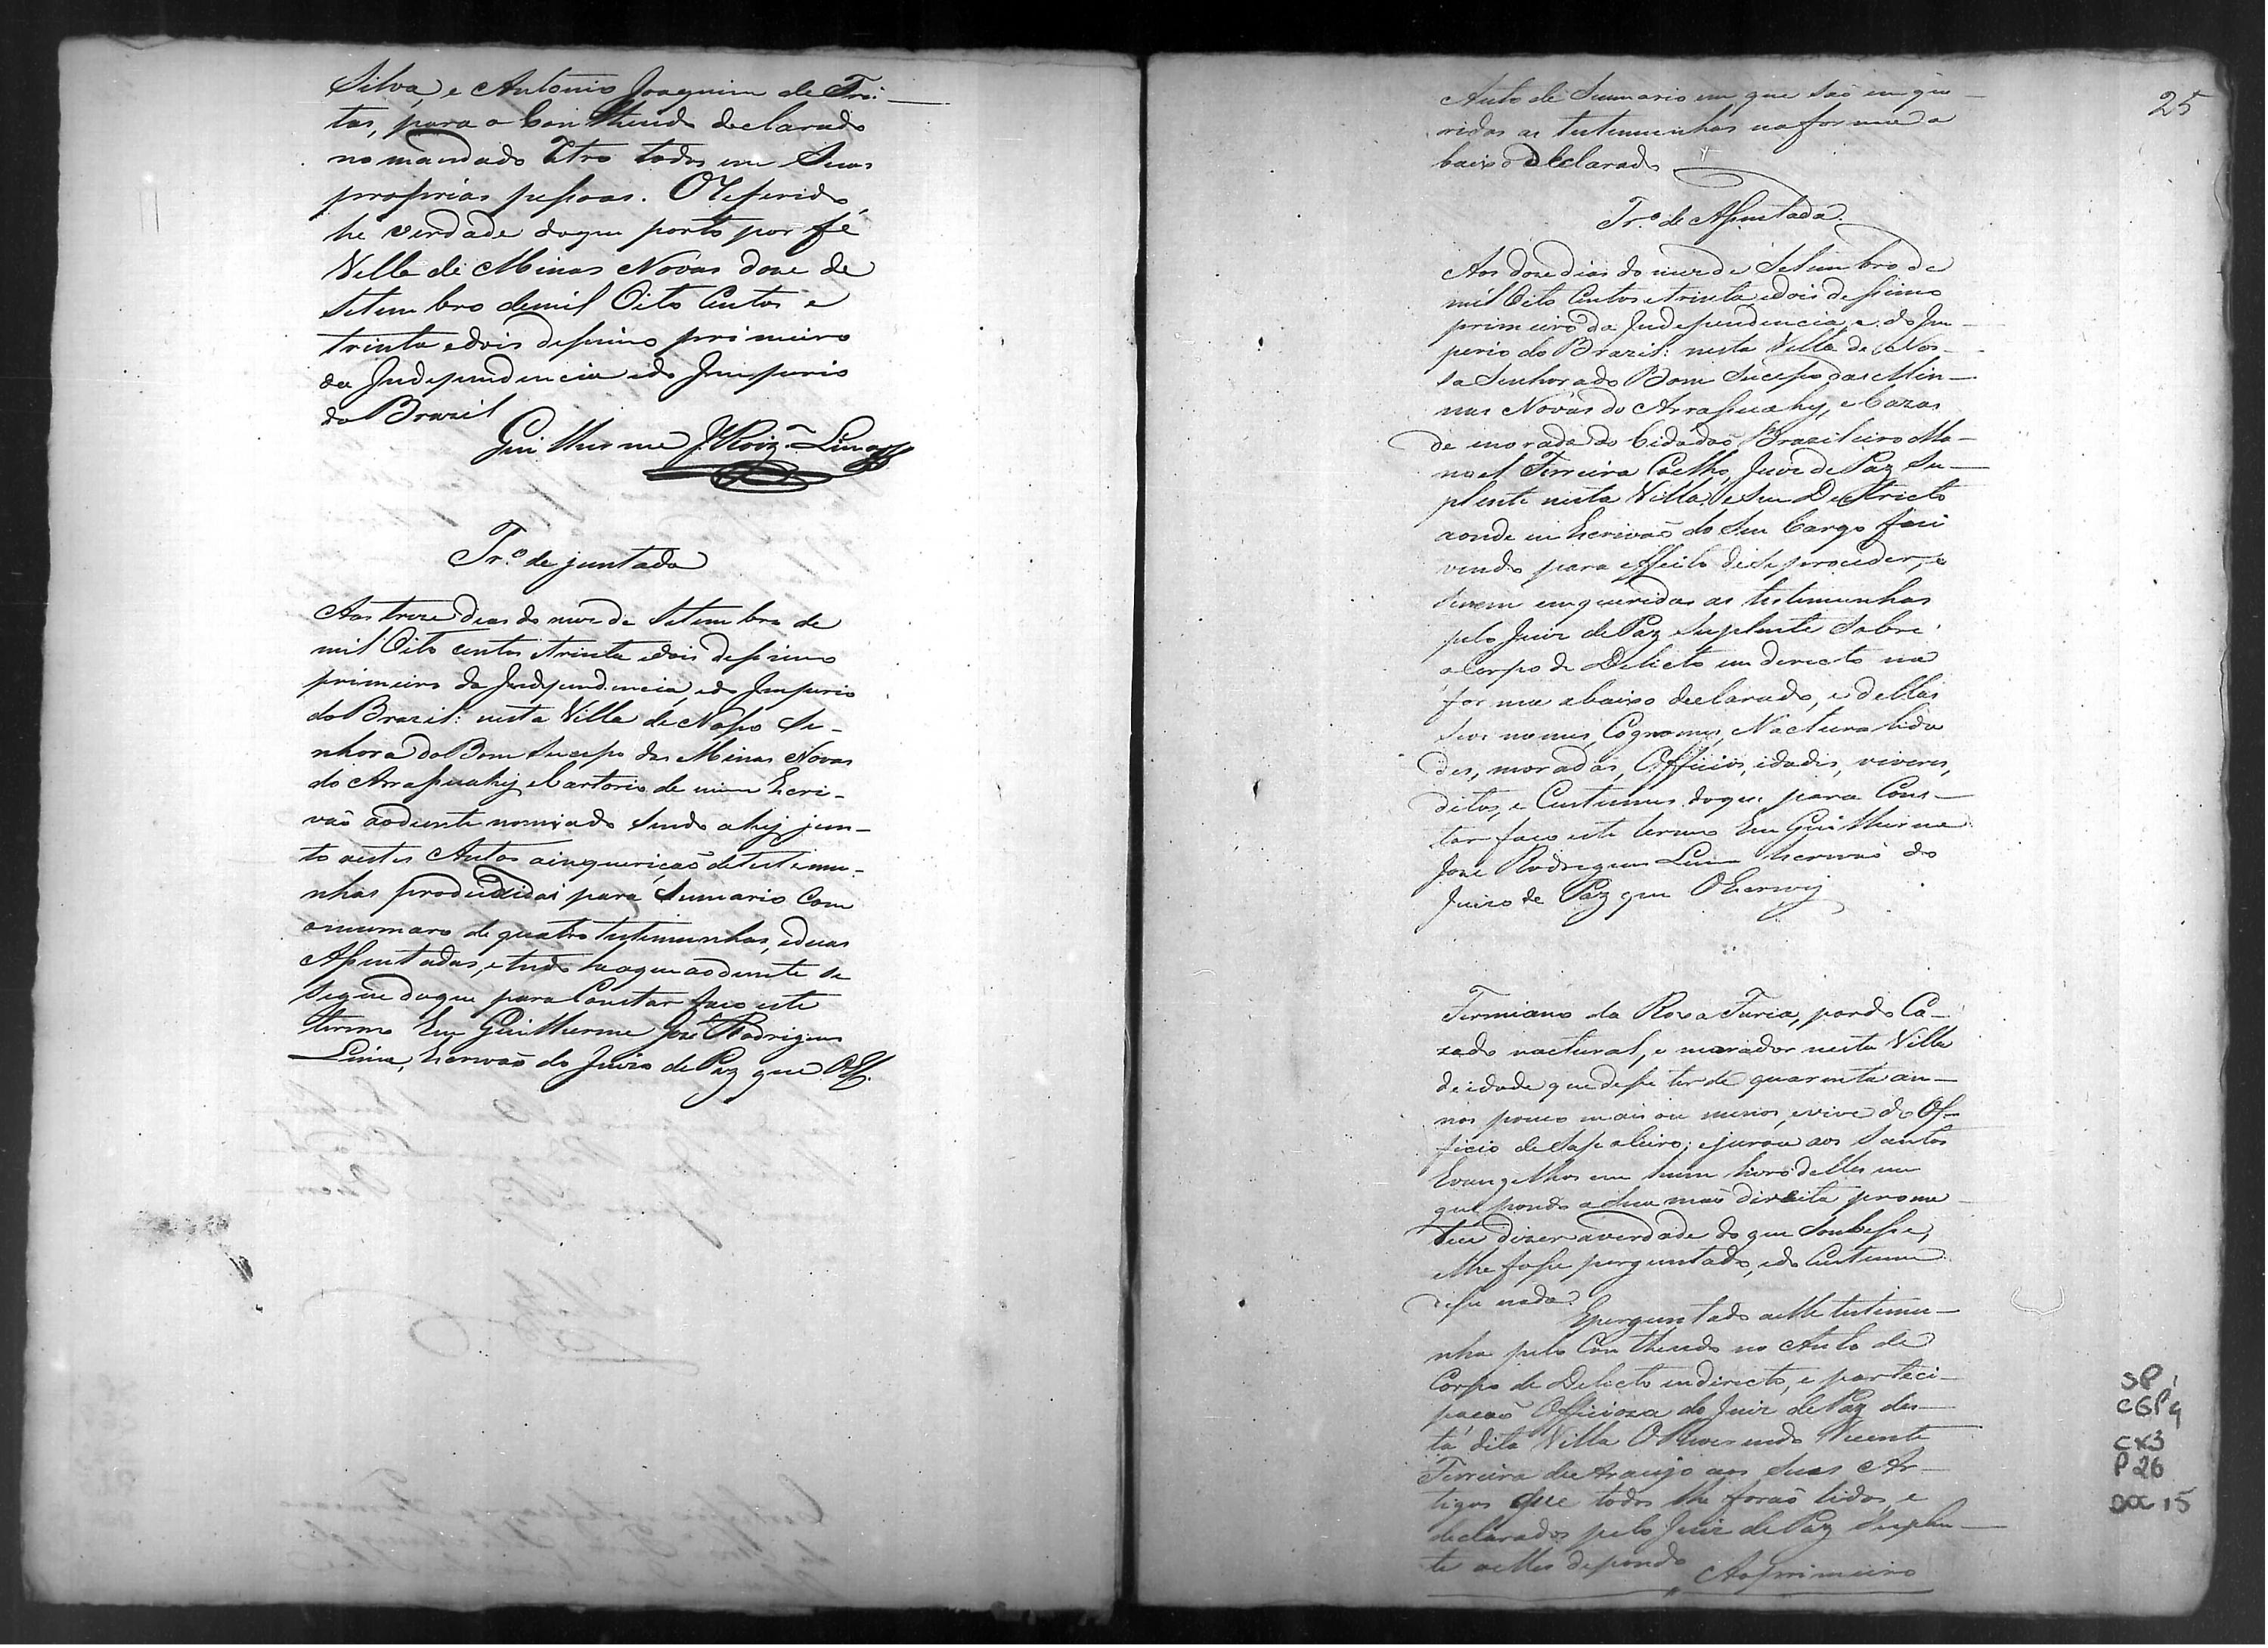 Silva, e Antonio Joaquim de Frei-
tas, para o Conthiudo declarado
no mandado retro todos em Suas
proprias pessoas. O referido
he verdade do que porto por fé
Villa de Minas Novas doze de
Setembro de mil Oito Centos e
trinta e dois dessimo primeiro
da Independencia e do Imperio
do Brazil
Guilherme J. Roiz Lima
Tr.º de juntada
Aos treze dias do mez de Setembro de
mil Oito centos e trinta e dois dessimo
primeiro da Independencia, e do Imperio
do Brazil: nesta Villa de Nossa Se-
nhora do Bom Sucesso das Minas Novas
do Arrassuahy, e Cartorio de mim Escri-
vaõ aodiente nomiado Sendo ahy jun-
to aestes Autos ainquericaõ de testemu-
nhas produzidas para Sumario Com
o numaro de quatro testimunhas, e duas
Assentadas, e tudo he o que aodiente se
Segue do que para Constar faco este
termo Eu Guilherme Joze Rodrigues
Lima, Escrivaõ do Juizo de Paz que OEs.
25
Auto de Sumario em que Saõ emque-
ridas as testemunhas na forma a
baixo declarado
Tr.º de Assentada
Aos doze dias do mez de Setembro de
mil Oito Centos e trinta e dois dessimo
primeiro da Independencia, e do Im-
perio do Brazil: nesta Villa de Nos-
sa Senhora do Bom Sucesso das Min-
nas Novas do Arrassuahy, e Cazas
de morada do Cidadaõ Brazileiro Ma-
noel Ferreira Coelho, Juiz de Paz Su-
plente nesta Villa, e Seu Destricto
aonde eu Escrivaõ do Seu Cargo fui
vindo para effeito de Se proceder, e
Serem emqueridas as testimunhas
pelo Juiz de Paz Suplente Sobre
o Corpo de Delicto emderecto na
forma abaixo declarado, e dellas
Seos nomes, Cognomes, Nacturalida
des, moradas, Officios, idades, viveres,
ditos, e Custumes do que para Cons-
tar faco este termo Eu Guilherme
Joze Rodrigues Lima Escrivaõ do
Juizo de Paz que OEscrevy
Firmiano da Roxa Furia, pardo Ca-
zado nactural, e morador nesta Villa
de idade que disse ter de quarenta an-
nos pouco mais ou menos, e vive do Of-
ficio de Sapateiro; e jurou aos Santos
Evangelhos em hum livro delles em
que pondo a Sua maõ direita prome
teu dizer a verdade do que Soubesse,
e lhe fosse perguntado, e do Custume
disse nada.
E perguntado a elle testimu-
nha pelo Conthiudo no Auto de
Corpo de Delicto endirecto, e parteci-
pacaõ Officioza do Juiz de Paz des-
ta dita Villa O Reverendo Vicente
Ferreira de Araujo aos Seus Ar-
tigos que todos lhe foraõ lidos, e
declarados pelo Juiz de Paz Suplen-
te a elles depondo Ao primeiro
SP
CGP 4
CX3
P 26
DOC 15